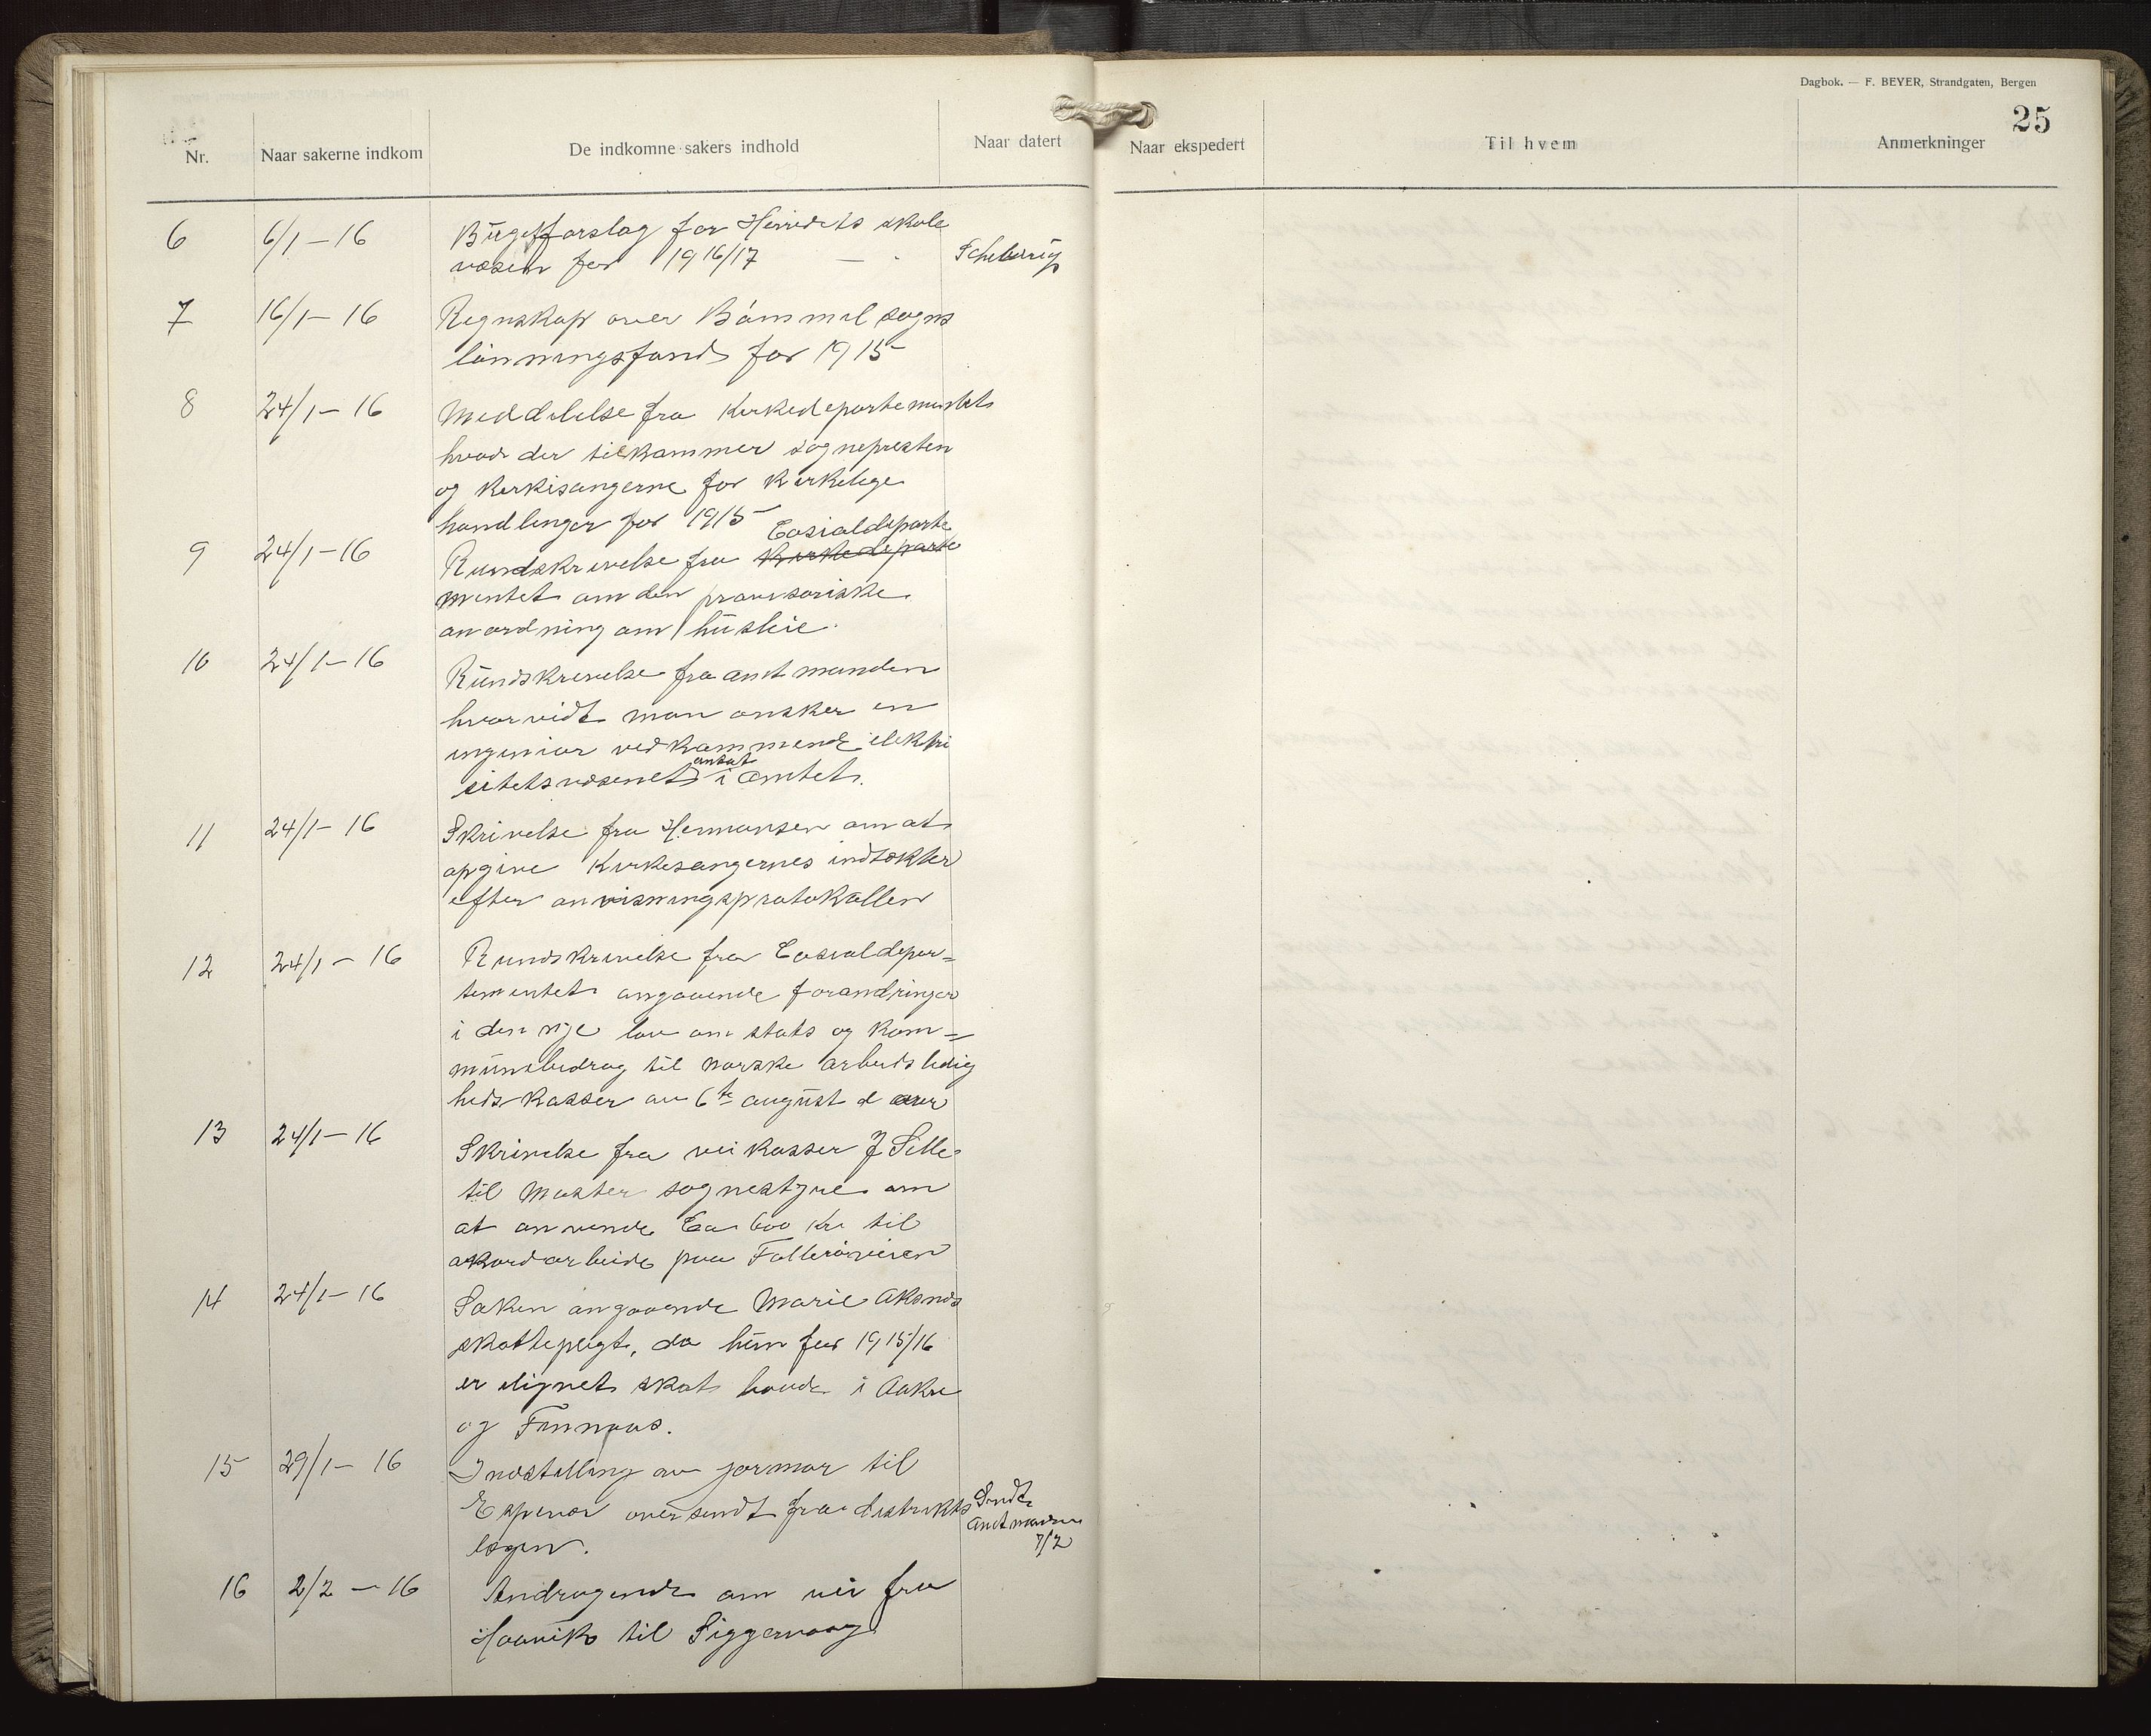 Dagbok. — F. BEYER, Strandgaten, Bergen
25
Nr. Naar sakerne indkom De indkomne sakers indhold Naar datert Naar ekspedert Til hvem Anmerkninger
6 6/1 – 16 Büdgetforslag for Herredets skole
væsen for 1916/17 —
7 16/1 – 16 Regnskap over Bömmel sogns
lönningsfond for 1915
8 24/1 – 16 Meddelelse fra Kirkedepartementet
hvad der tilkommer sognepresten
og Kirkesangerne for Kirkelige
handlinger for 1915
9 24/1 – 16 Rundskrivelse fra Kirkedeparte Cosialdeparte
mentet om den provisoriske
anordning om husleie.
10 24/1 – 16 Rundskrivelse fra amtmanden
hvorvidt man ønsker en
ingeniør vedkommende elektri
sitetsvæsenet ansat i amtet.
11 24/1 – 16 Skrivelse fra Hermansen om at
opgive Kirkesangernes indtækter
efter anvisningsprotokollen
12 24/1 – 16 Rundskrivelse fra Cosialdepar=
tementet angaaende forandringer
i den nye lov om stats og kom=
munebidrag til norske arbeidsledig
heds Kasser av 6te august d aar
13 24/1 – 16 Skrivelse fra veikasser J Sille
til Moster sognestyre om
at anvende Ca 600 Kr til
akordarbeide paa Folleröveien
14 24/1 – 16 Saken angaaende Marie
skattepligt, da hun for 1915/16
er lignet skat baade i Aakre
og Finnaas.
15 29/1 – 16 Indstilling av jormor til
Espevær oversendt fra distrikts Sendt
lægen. Amtmanden
7/2
16 2/2 – 16 Andragende om vei fra
Haavik til Siggervaag